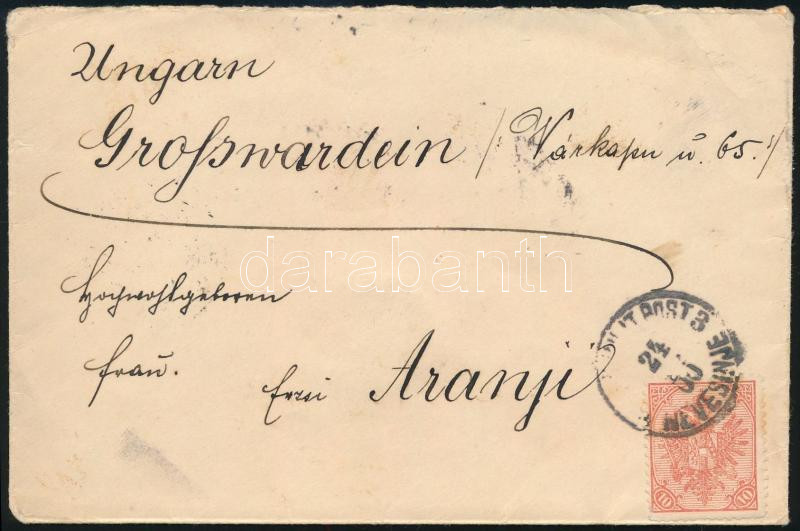 Ungarn
Grosswardein /: Várkapu u. 65. :/
Hochwohlgeboren
Frau.
Erzsi Aranji
MILIT. POST 3
24
NEVESINJE
10 10
darabanth